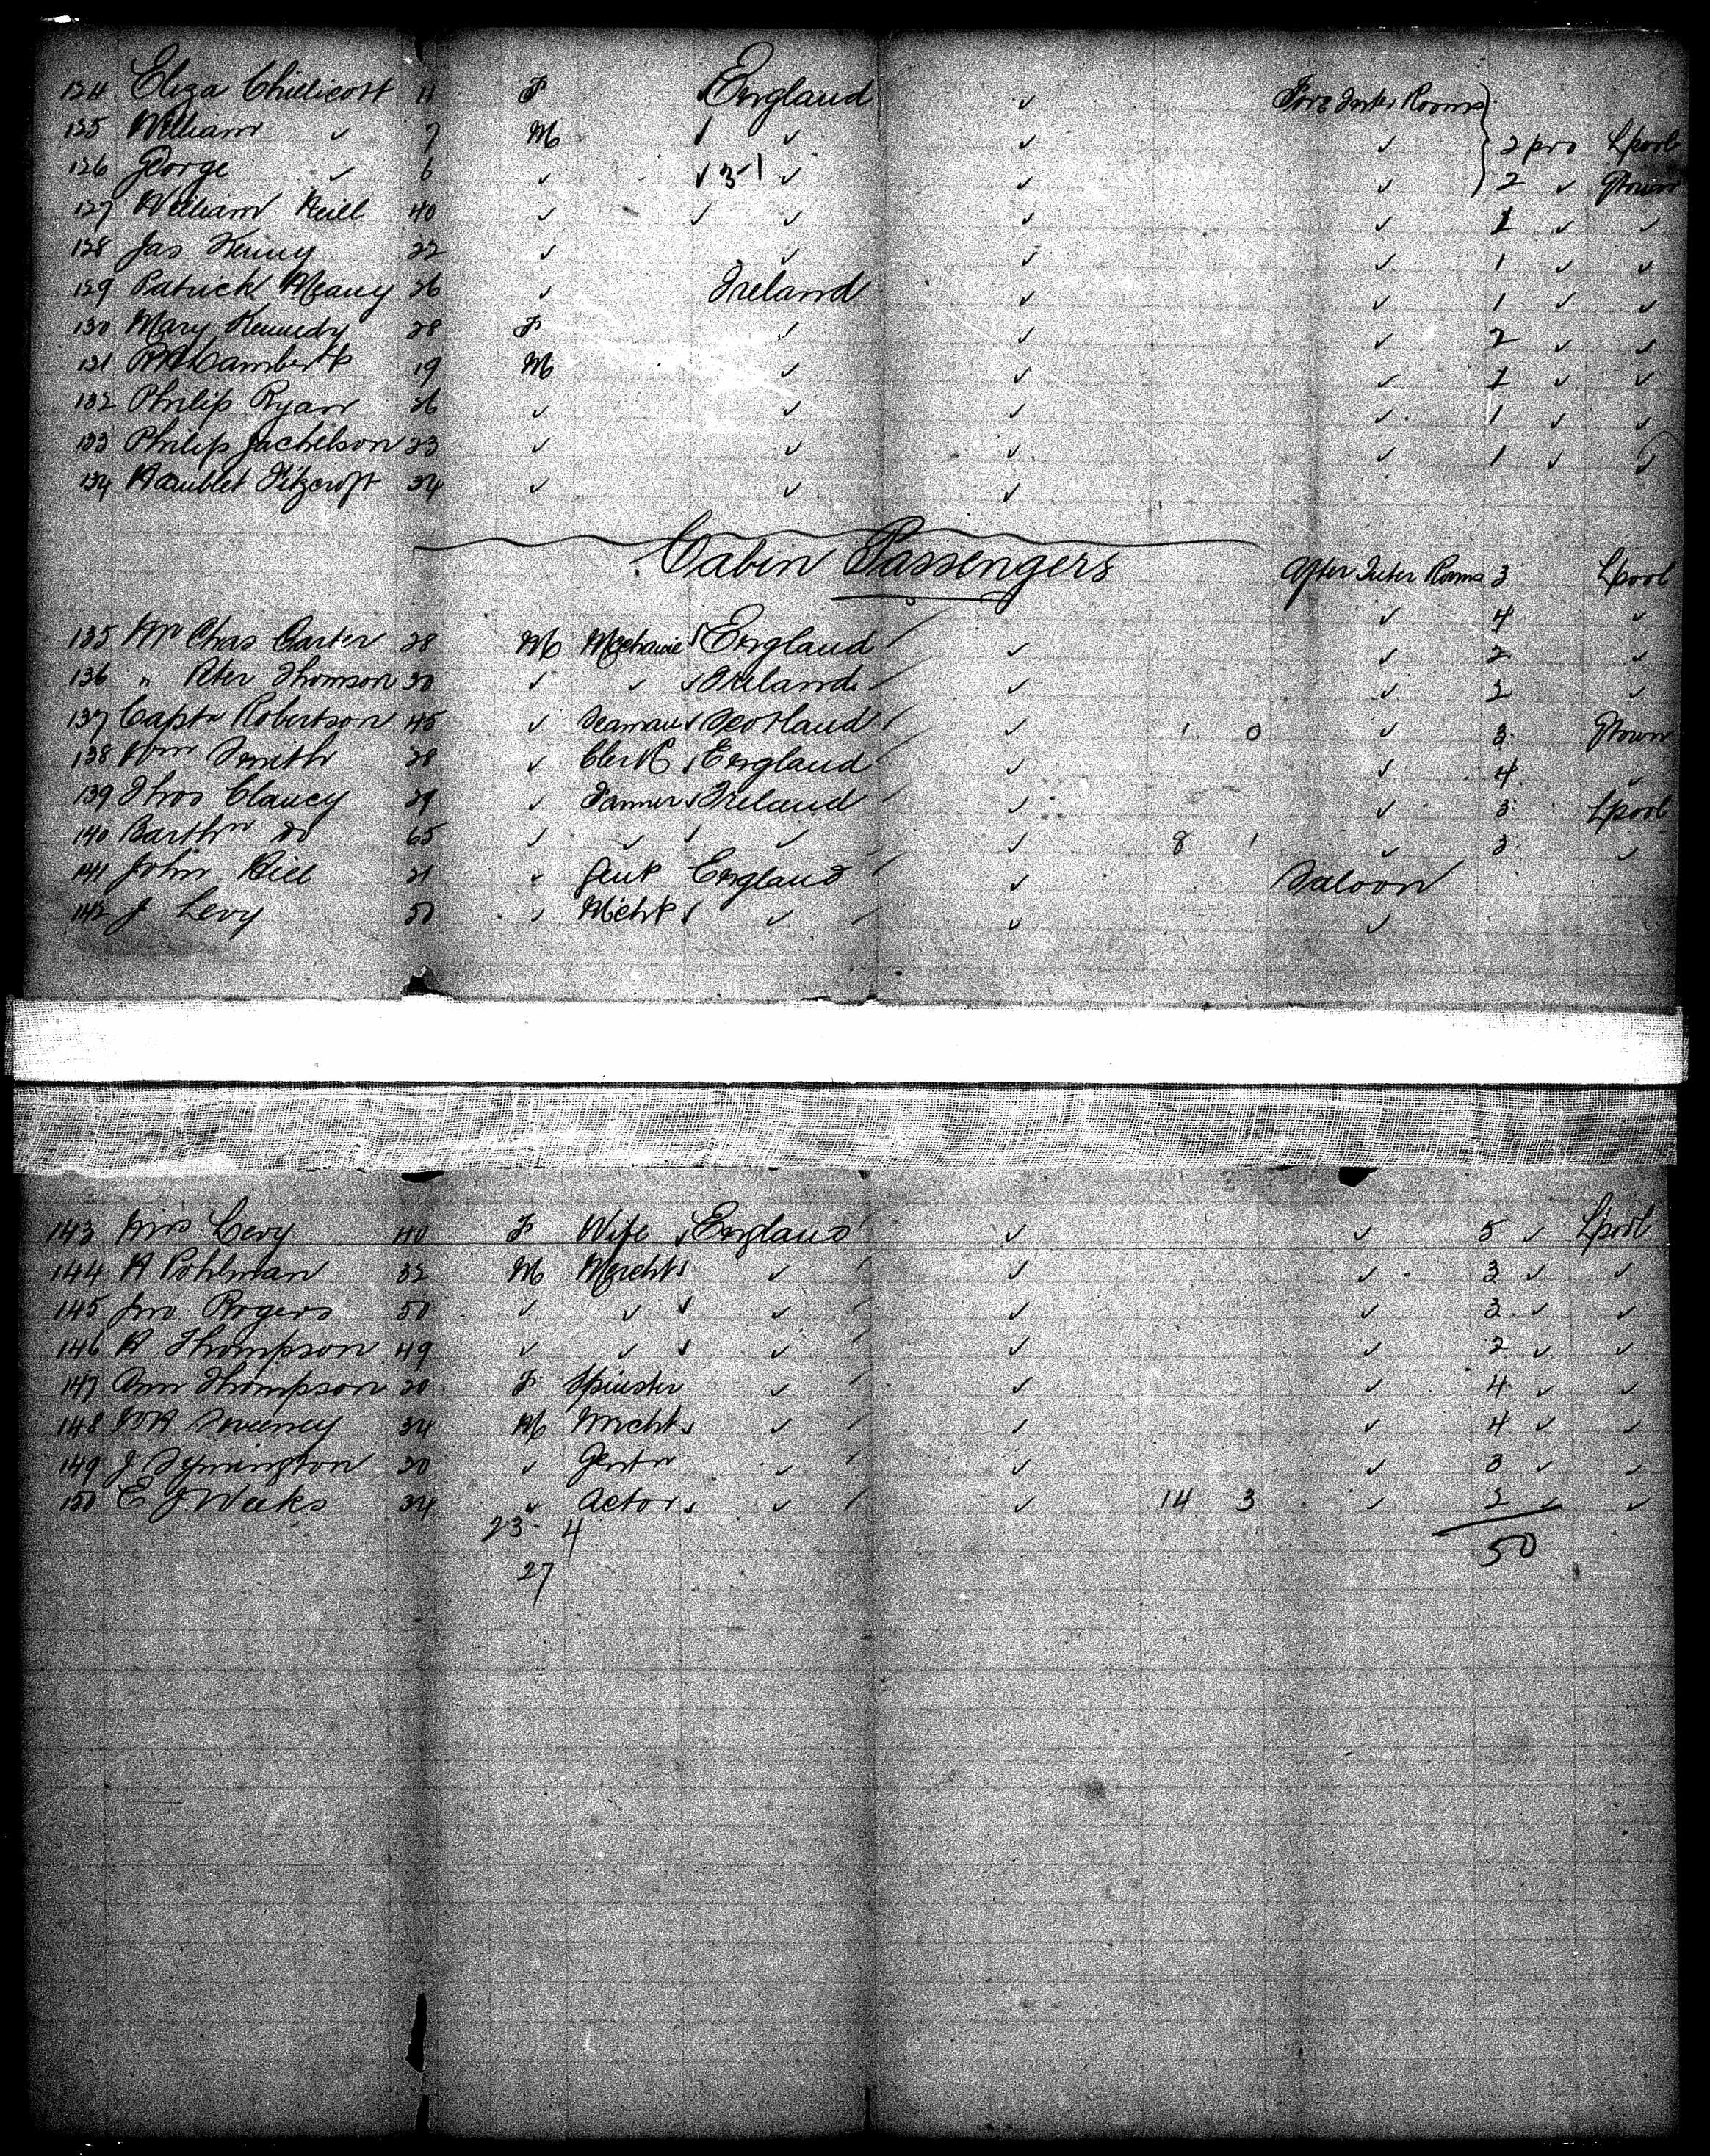 124 Eliza Chillicott 11 F England ✓ Fore Inter Rooms
125 William ✓ 7 M ✓ ✓ ✓ 2 pro Lpool
126 George ✓ 6 ✓ ✓ 3 1 ✓ ✓ ✓ 2 ✓ Qtown
127 William Neill 40 ✓ ✓ ✓ ✓ ✓ 1 ✓ ✓
128 Jas Kenny 22 ✓ ✓ ✓ ✓ 1 ✓ ✓
129 Patrick Meany 26 ✓ Ireland ✓ ✓ 1 ✓ ✓
130 Mary Kennedy 28 F ✓ ✓ ✓ 2 ✓ ✓
131 Lambert 19 M ✓ ✓ ✓ 1 ✓ ✓
132 Philip Ryan 26 ✓ ✓ ✓ ✓ 1 ✓ ✓
133 Philip Jachelson 23 ✓ ✓ ✓ ✓ 1 ✓ ✓
134 Hamblet Fitzcroft 34 ✓ ✓ ✓
Cabin Passengers
After Inter Rooms 3 Lpool
✓ 4 ✓
135 Mr Chas Carter 28 M Mechanic England ✓ ✓ 2 ✓
136 " Peter Thomson 30 ✓ ✓ ✓ Ireland ✓ ✓ 2 ✓
137 Captn Robertson 45 ✓ Seaman ✓ Scotland ✓ 1 0 ✓ 3 Qtown
138 Wm Smith 28 ✓ Clerk England ✓ ✓ 4 ✓
139 Thos Clancy 29 ✓ Farmer ✓ Ireland ✓ ✓ 3 Lpool
140 Barthw Do 65 ✓ ✓ ✓ ✓ ✓ 8 1 ✓ 3 ✓
141 John Hill 21 ✓ Gent England ✓ Saloon
142 J Levy 50 ✓ Mcht ✓ ✓ ✓ ✓
143 Mrs Levy 40 F Wife ✓ England ✓ ✓ 5 ✓ Lpool
144 A Pohlman 32 M Mercht ✓ ✓ ✓ 3 ✓ ✓
145 Jno Rogers 50 ✓ ✓ ✓ ✓ ✓ ✓ 3 ✓ ✓
146 A Thompson 49 ✓ ✓ ✓ ✓ ✓ ✓ 2 ✓ ✓
147 Ann Thompson 20 F Spinster ✓ ✓ ✓ 4 ✓ ✓
148 Sweeney 34 M Mrcht ✓ ✓ ✓ 4 ✓ ✓
149 J Symington 20 ✓ Gentn ✓ ✓ ✓ 3 ✓ ✓
150 E J Weeks 34 ✓ Actor ✓ ✓ 14 3 ✓ 2 ✓ ✓
23 4 50
27